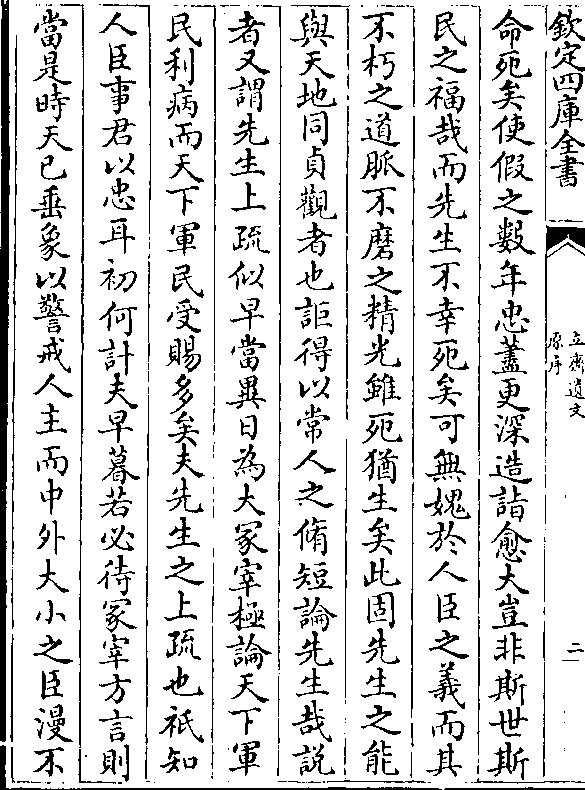 欽定四庫全書
立齋遺文
原序
二
命死矣使假之數年忠藎更深造詣愈大豈非斯世斯
民之福哉而先生不幸死矣可無媿於人臣之義而其
不朽之道脈不磨之精光雖死猶生矣此固先生之能
與天地同貞觀者也詎得以常人之脩短論先生哉説
者又謂先生上疏似早當異日為大冢宰極論天下軍
民利病而天下軍民受賜多矣夫先生之上疏也祇知
人臣事君以忠耳初何計夫早暮若必待冢宰方言則
當是時天已垂象以警戒人主而中外大小之臣漫不